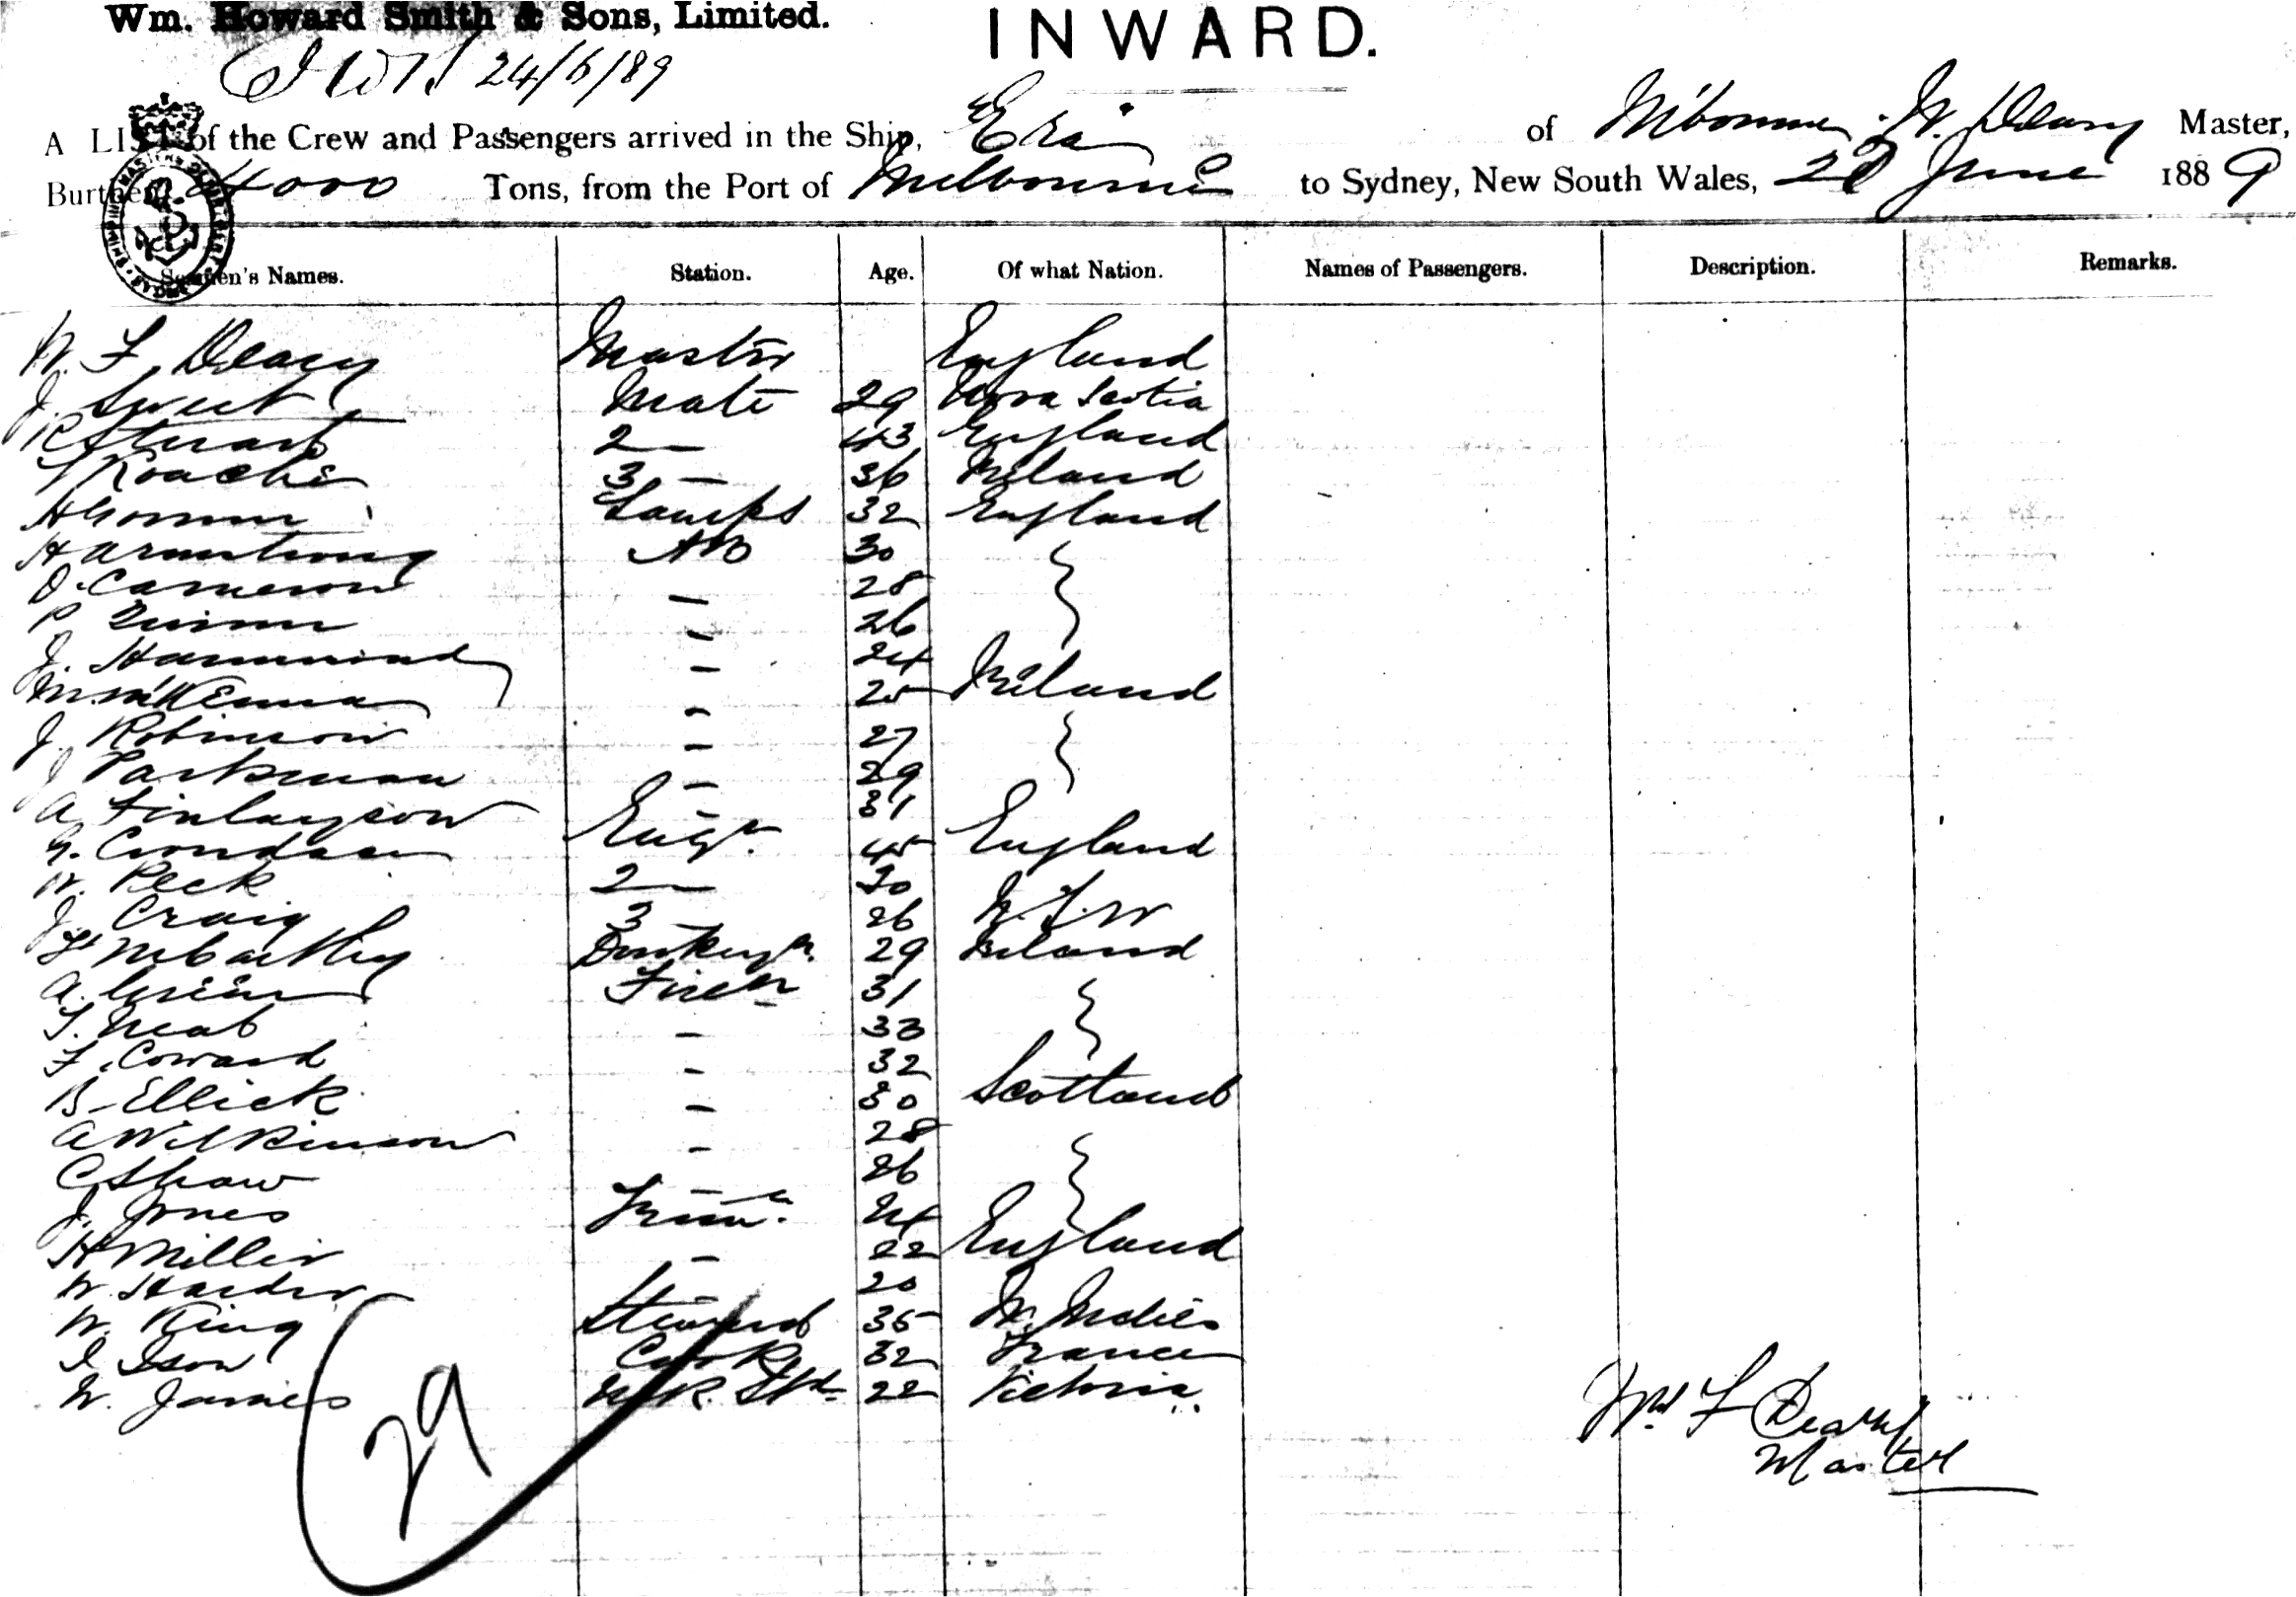 Wm. Howard Smith & Sons, Limited.
INWARD.
24/6/89
A LIST of the Crew and Passengers arrived in the Ship, of M'bourne W. Deary Master,
Burthen 4000 Tons, from the Port of Melbourne to Sydney, New South Wales, June 1889
Seamen's Names. Station. Age. Of what Nation. Names of Passengers. Description. Remarks.
W. F. Deary Master England
J. Sweet Mate 29 Nova Scotia
R Stuart 2 — 43 England
Roache 3 — 36 Ireland
Lamps 32 England
H Armstrong AB 30
D. Cameron — 28
P Quinn — 26
J. Hammond — 24
M. McKenna — 25 Ireland
J. Robinson — 27
J Parkman — 29
A Finlayson — 31
G. Engr. 45 England
W. Peck 2 — 30
J. Craig 3 — 26 N.S.W
McCarthy Donkeyn. 29 Ireland
A. Grier Firen 31
T. Neab — 33
F. Coward — 32
B. Ellick — 30 Scotland
A Wilkinson — 28
C Shaw — 26
J. Jones Trimr. 24
H Miller — 22 England
W. Harder — 20
W. King Steward 35 W. Indies
I Ison Cook 32 France
W. James 22 Victoria
29
Wm F Deary
Master